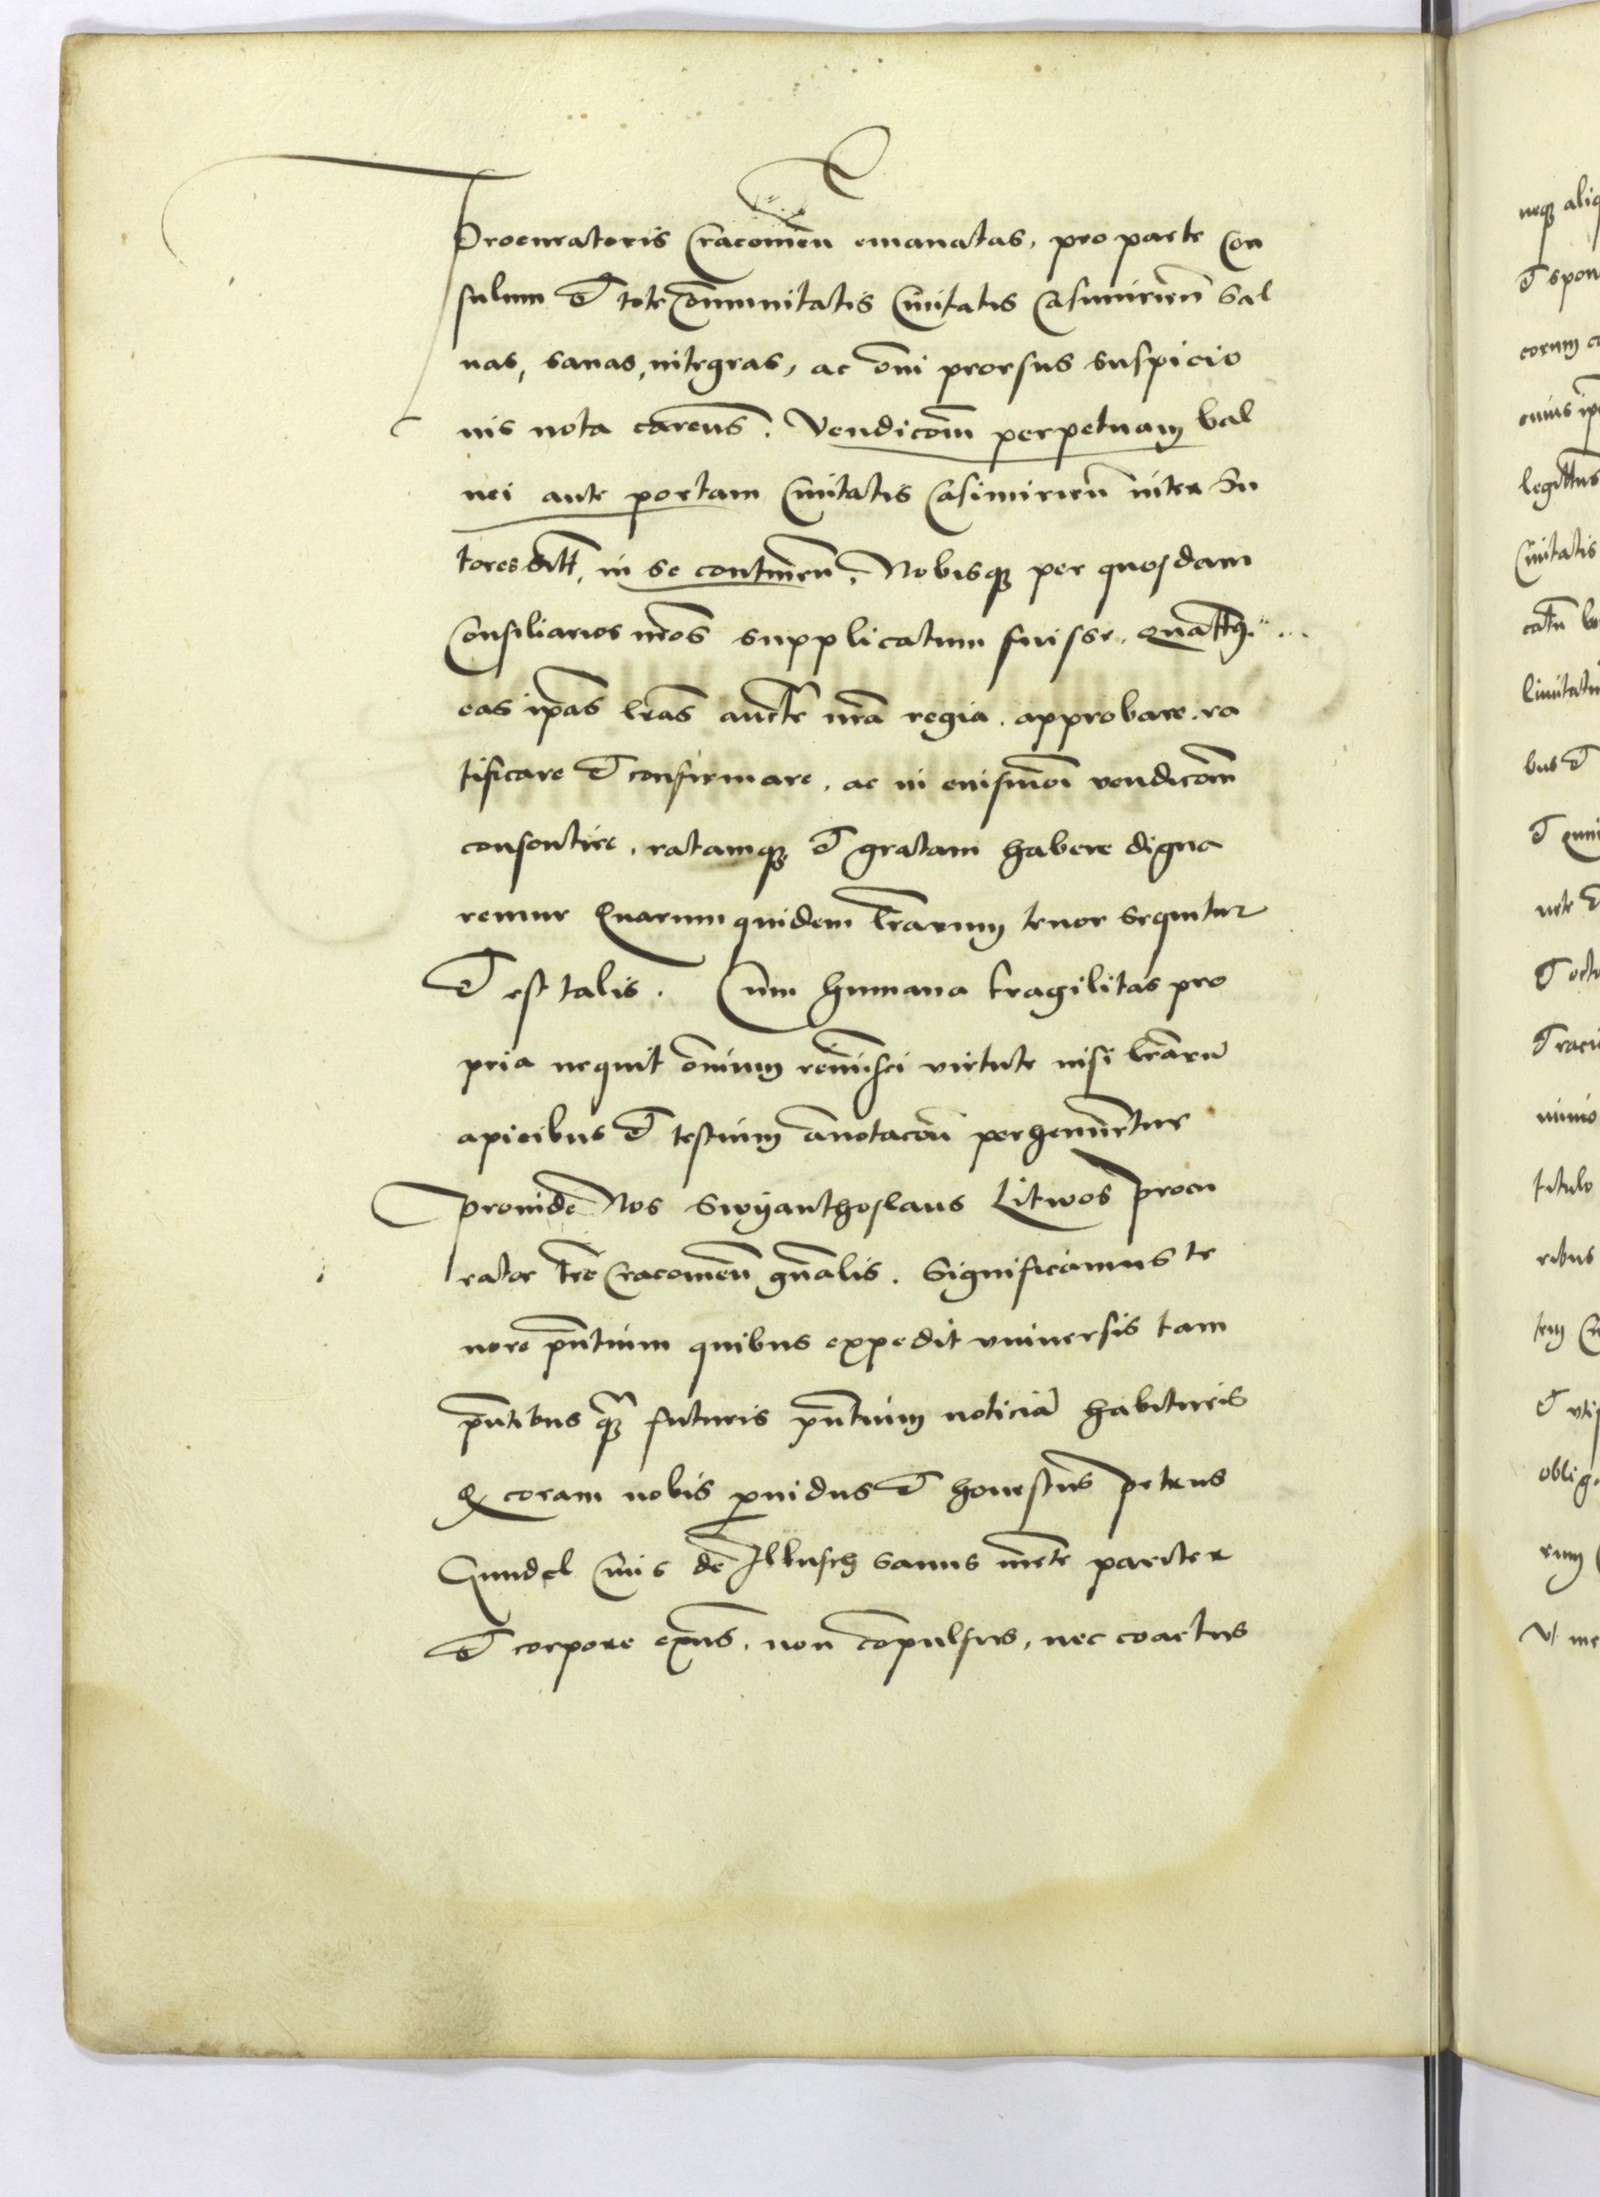 Procuratoris Cracouien̄ emanatas, pro parte Con
sulum et tote Co̅munitatis Ciuitatis Casimirien̄ Sal
uas, sanas, integras, ac o̅mi prorsus suspicio
nis nota caren̅s. Vendico̅m perpetuam Bal
nei ante portam Ciuitatis Casimirien̄ inter Su
tores sitī, in se contine̅n, Nobisq₃ per quosdam
Consiliarios nr̅os supplicatum fuisse, quat̅9
eas ip̅as lr̅as auct̅e nr̅a regia approbare. ra
tificare et confirmare, ac in euismo̅i vendico̅m
consentire, ratamq₃ et gratam habere digna
remur Quarum quidem lr̅arum tenor sequitur
et est talis. Cum humana fragilitas pro
pria nequit o̅nium remi̅sci virtute nisi lr̅arū
apicibus et testium an̅otaco̅n perhenne̅tur
Prouide Nos Swyanthoslaus Litwos Procu
rator tr̅e Cracouien̄ gn̅alis. Significamus te
nore pn̅tium quibus expedit vniuersis tam
pn̅tibus q₃ futuris pn̅tium noticiā habituris
Q coram nobis p̱uidus et honestus Petrus
Gundel Ciuis de Ilkusch sanus me̅te pariter
et corpore exn̅s, non co̅pulsus, nec coactus
neq₃
et spon
eorum
cuius ip̅
Ciuitatis
bus et
titulo
ribus
oblig